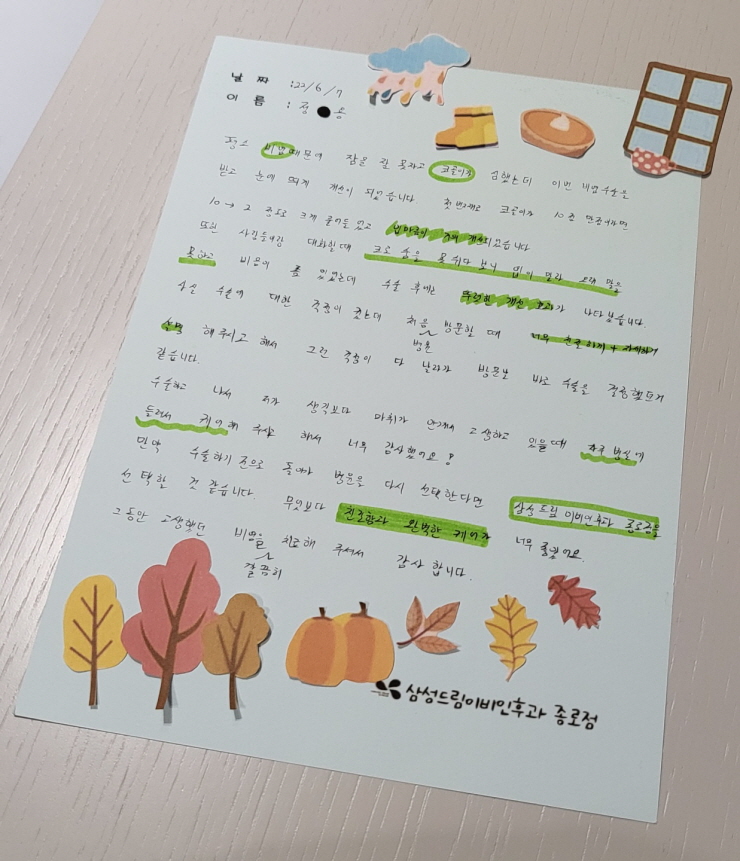 날 짜 : 22/6/7
이 름 : 정 ● 용
평소 비염때문에 잠을 잘 못자고 코골이가 심했는데 이번 비염수술을
받고 눈에 띄게 개선이 되었습니다. 첫번째로 코골이가 10점 만점이라면
10→2 정도로 크게 줄어들었고 입마름이 거의 개선되었습니다
또한 사람들이랑 대화할때 코로 숨을 못쉬다 보니 입이 말라 오래 말을
못하고 비음이 좀 있었는데 수술 후에는 뚜렷한 개선 효과가 나타났습니다.
사실 수술에 대한 걱정이 컸는데 처음 병원 방문할 때 너무 친절하게 + 자세하게
설명 해주시고 해서 그런 걱정이 다 날라가 방문날 바로 수술을 결정했던거
같습니다.
수술하고 나서 제가 생각보다 마취가 안깨서 고생하고 있을때 자주 병실에
들러서 케어해 주시고 해서 너무 감사했어요!
만약 수술하기 전으로 돌아가 병원을 다시 선택한다면 삼성드림 이비인후과 종로점을
선택할 것 같습니다. 무엇보다 친절함과 완벽한 케어가 너무 좋았어요.
그동안 고생했던 비염을 깔끔히 치료해 주셔서 감사 합니다.
삼성드림이비인후과 종로점